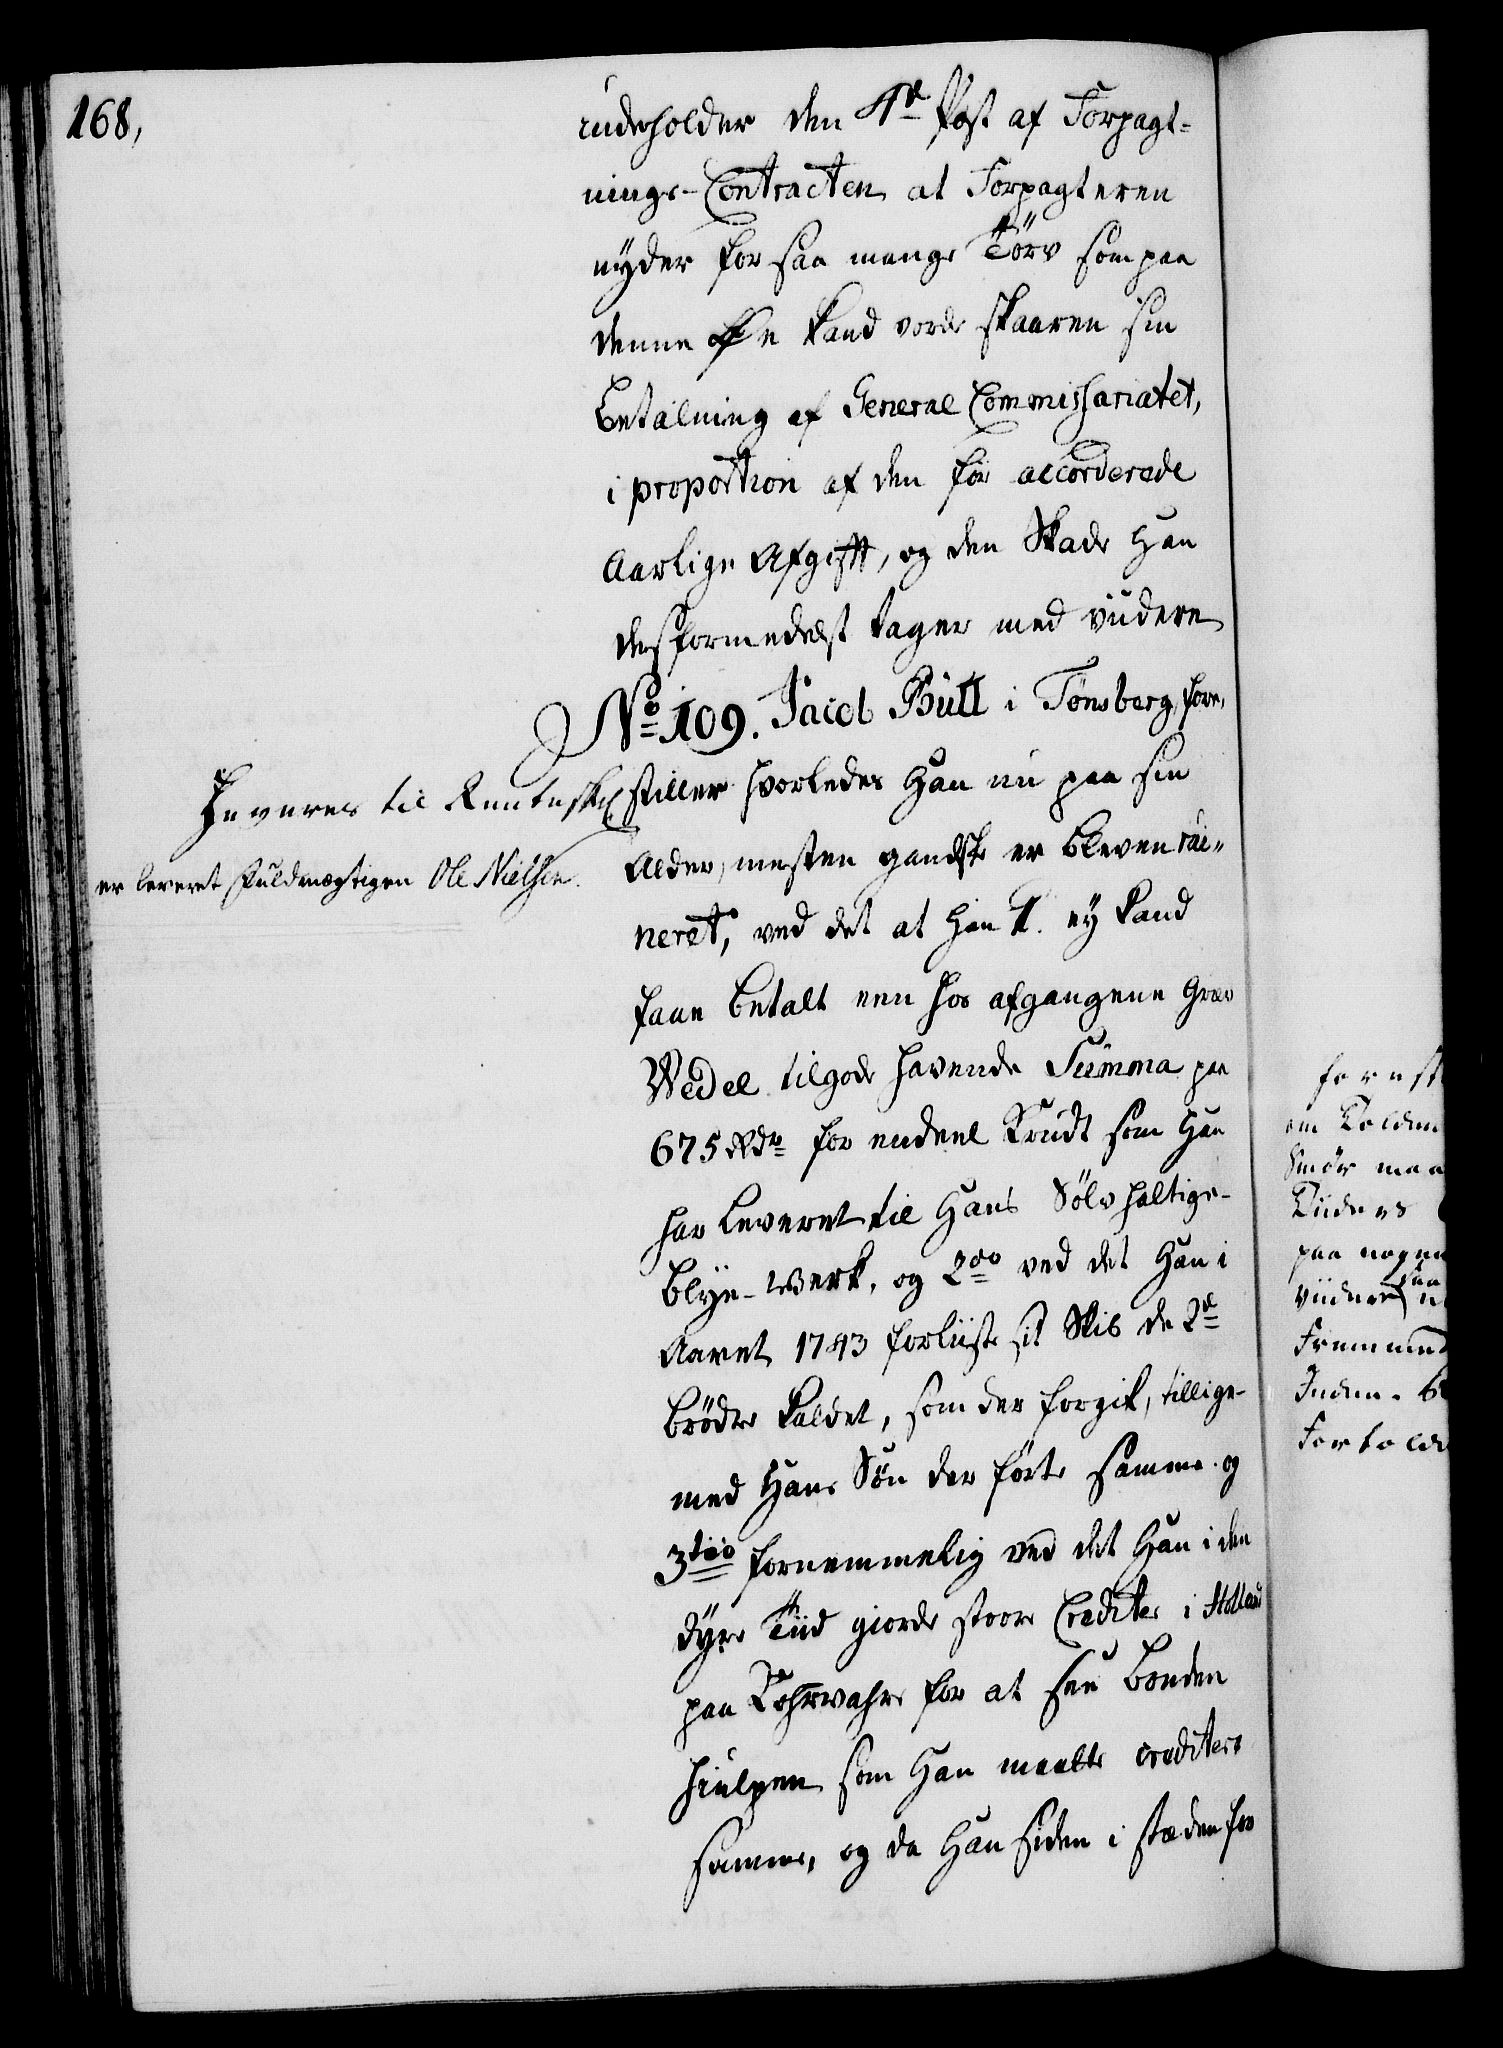 168,
indeholder den 4de Post af Forpagt=
nings-Contracten at Forpagteren
nyder for saa mange Törv som paa
denne Øe kand vorde skaaren sin
Betalning af General Commissariatet,
i proportion af den för accorderede
Aarlige Afgifft, og den Skade Han
desformedelst tager med viidere
No 109. Jacob Bull i Tönsberg, fore,
stiller hvorledes Han nu paa sin
Alder, mesten gandske er bleven rui-
neret, ved det at Han 1. ey kand
faae betalt een hos afgangene Grev
Wedel tilgode havende Summa paa
675 Rdr for endeel Krudt som Han
har leveret til Hans Sölvholtige-
Blye-Werk, og 2do ved det Han i
Aaret 1743 forliiste sit Skib de 2de
Brödre kaldet, som der forgik, tillige-
med Hans Sön der förte samme. og
3tio fornemmelig ved det Han i den
dyre Tiid giorde stoore Crediter i Holland
paa Kornvahre for at see Bonden
hiulpen som Han maatte creditere
samme, og da Han siden i stæden for
Hevures til Renteskr
er leveret Fuldmægtigen Ole Nielsen.
forest
om Tolden
Smör maa
Tiiders
paa nogen
viidere
saa
Fremmed
Inden- b
Fortolde